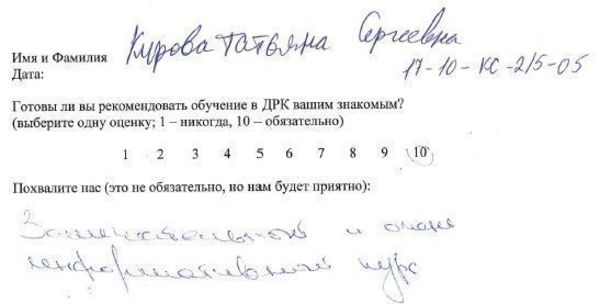 Имя и Фамилия Курова Татьяна Сергеевна
Дата: 17-10-КС-215-05
Готовы ли вы рекомендовать обучение в ДРК вашим знакомым?
(выберите одну оценку; 1 – никогда, 10 – обязательно)
1 2 3 4 5 6 7 8 9 10
Похвалите нас (это не обязательно, но нам будет приятно):
Замечательный и очень
информативный курс